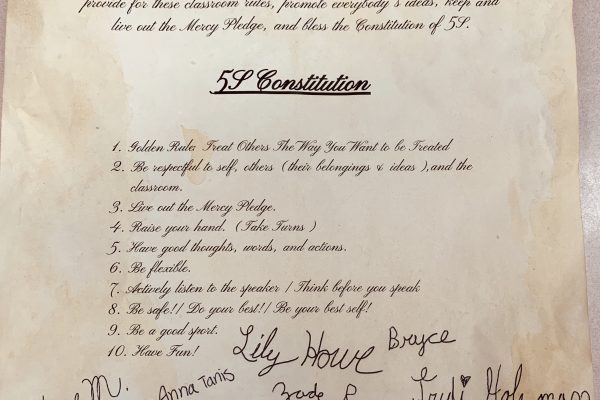 provide for these classroom rules, promote everybody's ideas, keep and
live out the Mercy Pledge, and bless the Constitution of 5S.
5S Constitution
1. Golden Rule Treat Others The Way You Want to be Treated
2. Be respectful to self, others (their belongings & ideas ),and the
classroom.
3. Live out the Mercy Pledge.
4. Raise your hand. (Take Turns )
5. Have good thoughts, words, and actions.
6. Be flexible.
7. Actively listen to the speaker / Think before you speak
8. Be safe!/ Do your best!/ Be your best self!
9. Be a good sport.
10. Have Fun!
Lily Howe Bryce
M. Anna Tanis